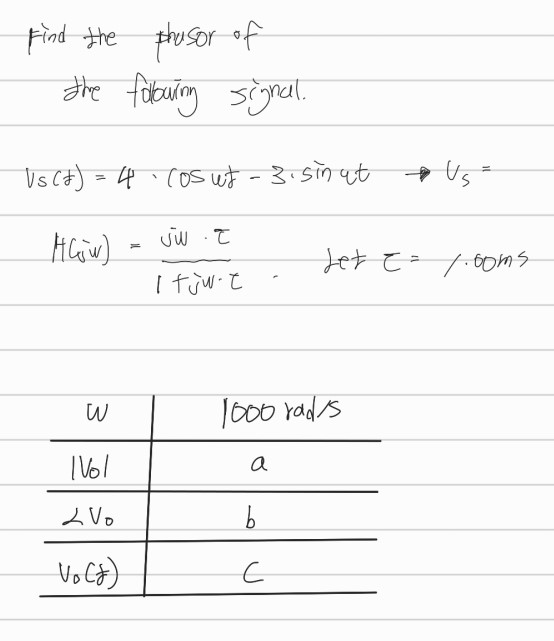 Find the phasor of
the following signal.
Vs(t) = 4 · cos ωt - 3 · sin ωt → Vs =
H(jω) = jω · τ / 1 + jω · τ . Let τ = 1.00ms
ω 1000 rad/s
|Vo| a
∠Vo b
Vo(t) C